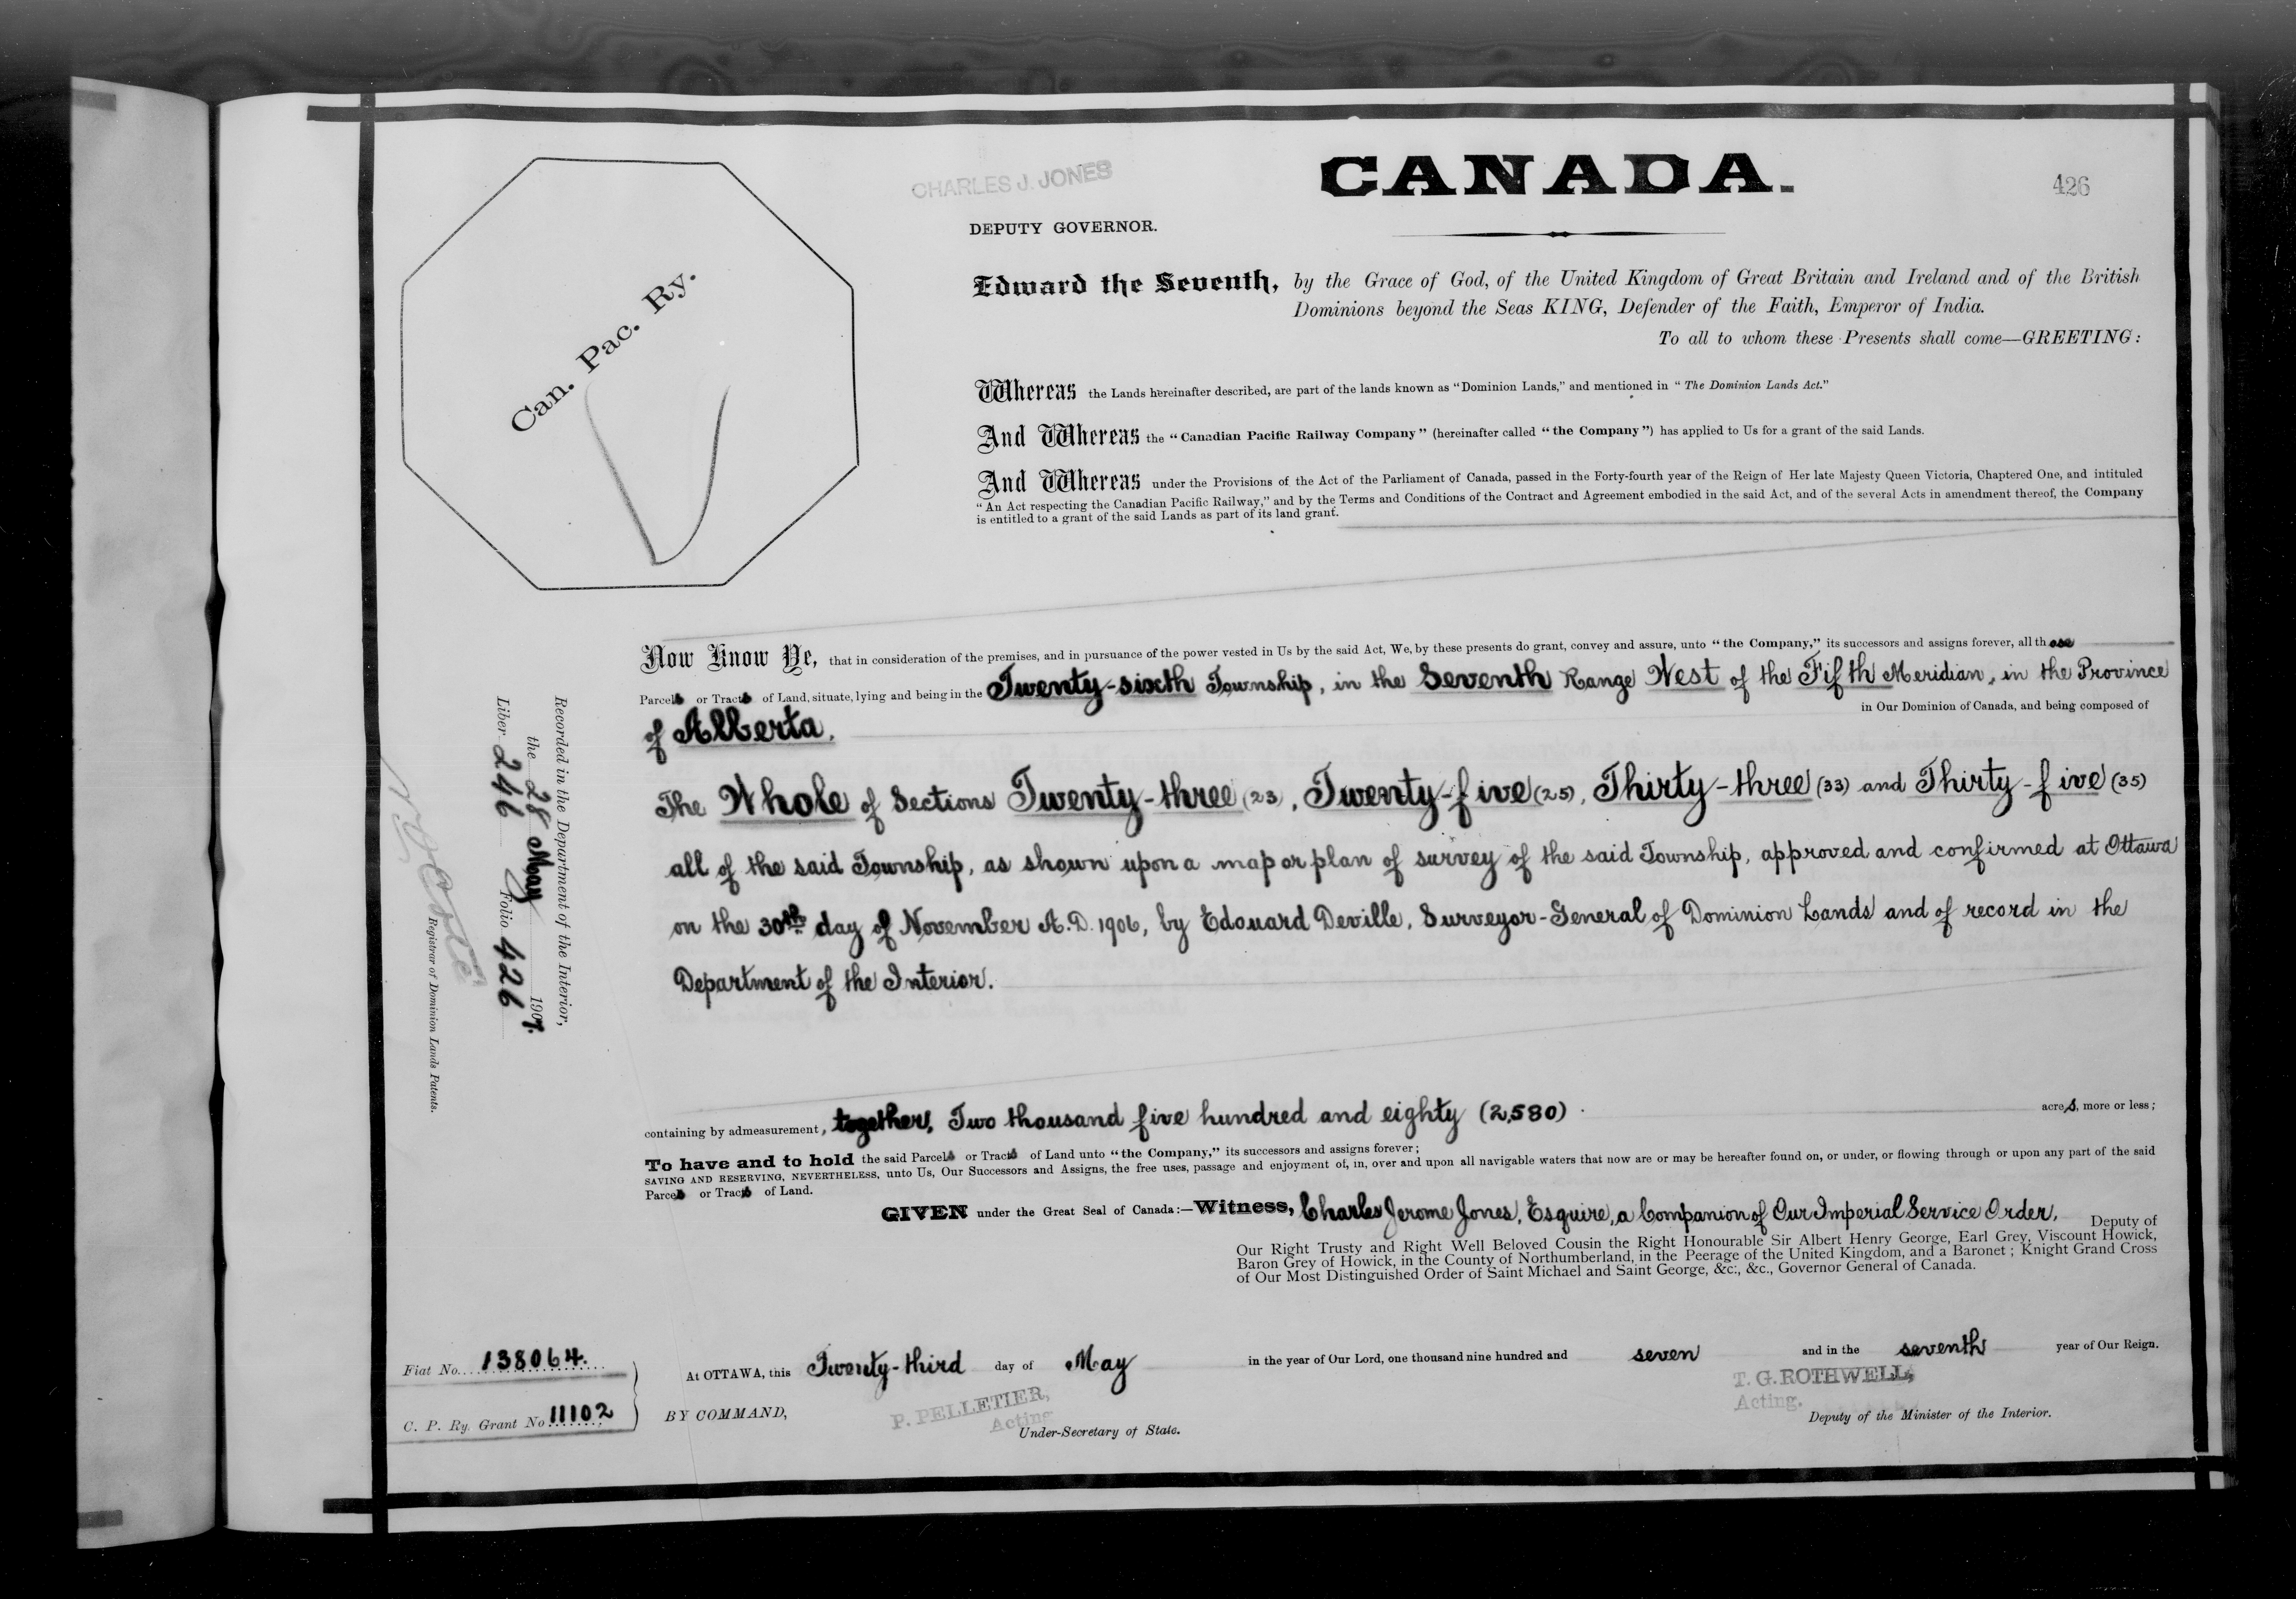 CHARLES J. JONES
CANADA.
426
DEPUTY GOVERNOR.
Can. Pac. Ry.
Edward the Seventh, by the Grace of God, of the United Kingdom of Great Britain and Ireland and of the British
Dominions beyond the Seas KING, Defender of the Faith, Emperor of India.
To all to whom these Presents shall come—GREETING:
Whereas the Lands hereinafter described, are part of the lands known as "Dominion Lands," and mentioned in "The Dominion Lands Act."
And Whereas the "Canadian Pacific Railway Company" (hereinafter called "the Company") has applied to Us for a grant of the said Lands.
And Whereas under the Provisions of the Act of the Parliament of Canada, passed in the Forty-fourth year of the Reign of Her late Majesty Queen Victoria, Chaptered One, and intituled
"An Act respecting the Canadian Pacific Railway," and by the Terms and Conditions of the Contract and Agreement embodied in the said Act, and of the several Acts in amendment thereof, the Company
is entitled to a grant of the said Lands as part of its land grant.
Now Know Ye, that in consideration of the premises, and in pursuance of the power vested in Us by the said Act, We, by these presents do grant, convey and assure, unto "the Company," its successors and assigns forever, all those
Parcels or Tracts of Land, situate, lying and being in the Twenty-sixth Township, in the Seventh Range West of the Fifth Meridian, in the Province
of Alberta. in Our Dominion of Canada, and being composed of
The Whole of Sections Twenty-three (23), Twenty-five (25), Thirty-three (33) and Thirty-five (35)
all of the said Township, as shown upon a map or plan of survey of the said Township, approved and confirmed at Ottawa
on the 30th day of November A.D. 1906, by Edouard Deville, Surveyor-General of Dominion Lands and of record in the
Department of the Interior.
containing by admeasurement, together, Two thousand five hundred and eighty (2,580) acres, more or less;
To have and to hold the said Parcels or Tracts of Land unto "the Company," its successors and assigns forever;
SAVING AND RESERVING, NEVERTHELESS, unto Us, Our Successors and Assigns, the free uses, passage and enjoyment of, in, over and upon all navigable waters that now are or may be hereafter found on, or under, or flowing through or upon any part of the said
Parcels or Tracts of Land.
GIVEN under the Great Seal of Canada:—Witness, Charles Jerome Jones, Esquire, a Companion of Our Imperial Service Order, Deputy of
Our Right Trusty and Right Well Beloved Cousin the Right Honourable Sir Albert Henry George, Earl Grey, Viscount Howick,
Baron Grey of Howick, in the County of Northumberland, in the Peerage of the United Kingdom, and a Baronet; Knight Grand Cross
of Our Most Distinguished Order of Saint Michael and Saint George, &c., &c., Governor General of Canada.
At OTTAWA, this Twenty-third day of May in the year of Our Lord, one thousand nine hundred and seven and in the seventh year of Our Reign.
BY COMMAND,
P. PELLETIER,
Acting
Under-Secretary of State.
T. G. ROTHWELL,
Acting.
Deputy of the Minister of the Interior.
Fiat No. 138064.
C. P. Ry. Grant No 11102
Recorded in the Department of the Interior,
the 28 May 1907.
Liber 246 Folio 426
Registrar of Dominion Lands Patents.